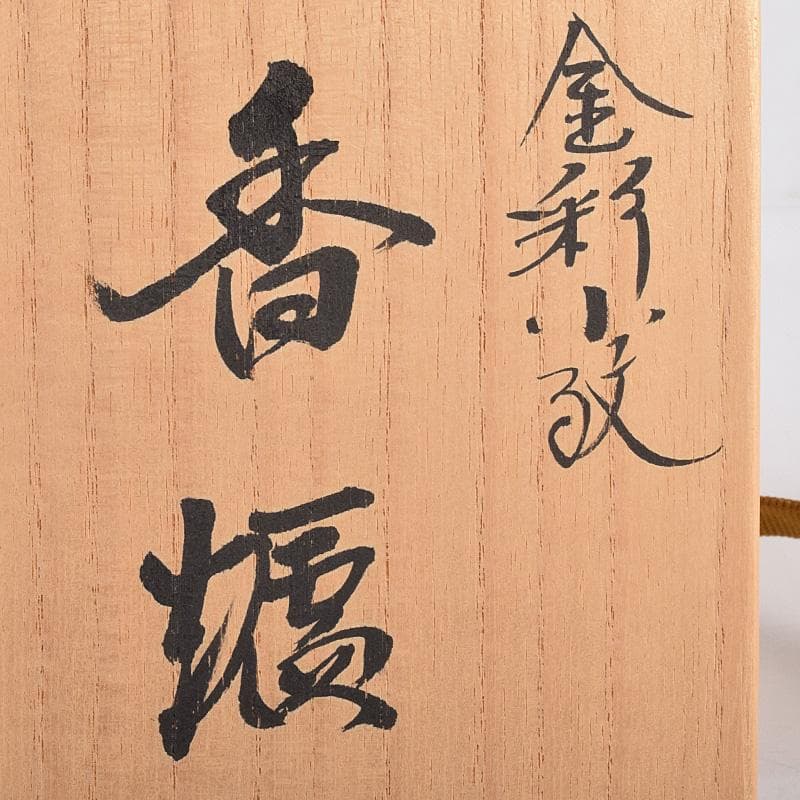 金彩小紋
香爐